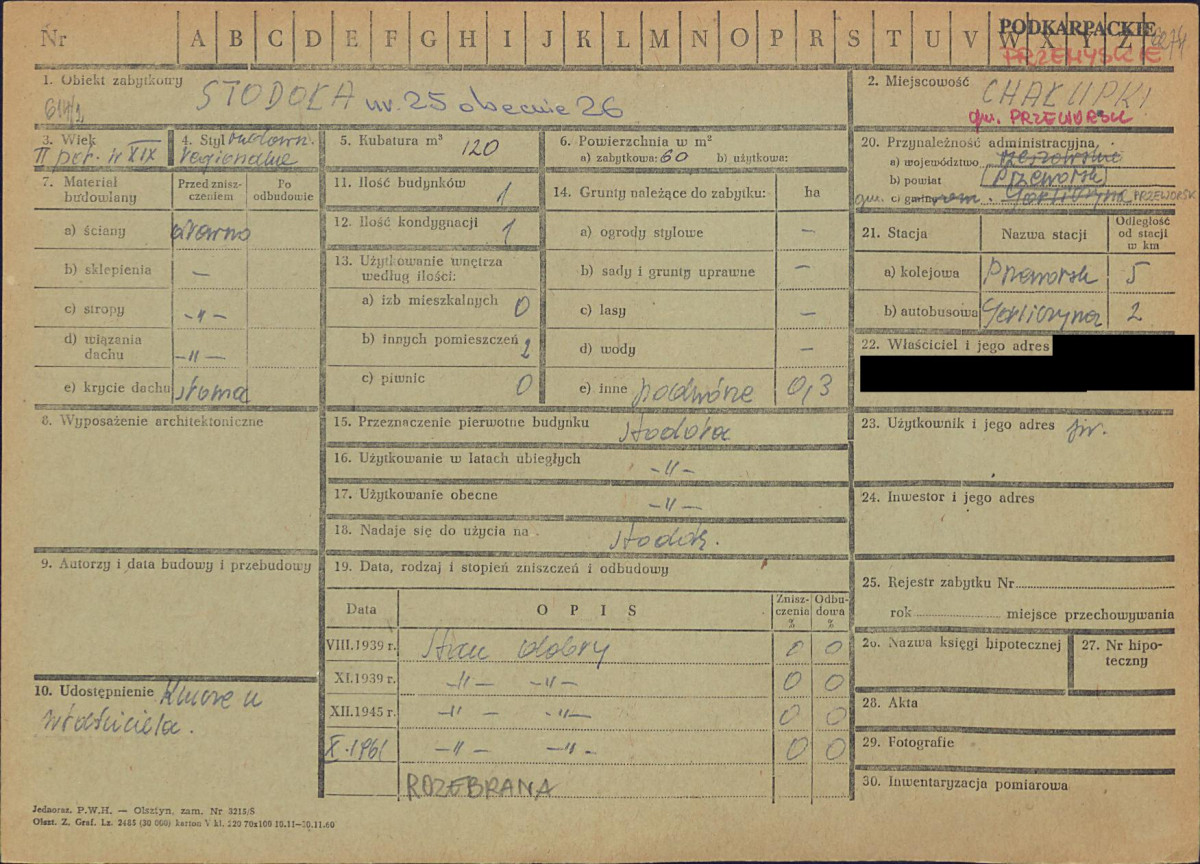 Nr A B C D E F G H I J K L M N O P R S T U V W X Y Z
PODKARPACKIE
PRZEMYSKIE
1. Obiekt zabytkowy STODOŁA nr. 25 obecnie 26
2. Miejscowość CHAŁUPKI
gm. PRZEWORSK
3. Wiek II poł. w XIX
4. Styl budown. regionalne
5. Kubatura m³ 120
6. Powierzchnia w m²
a) zabytkowa: 60 b) użytkowa:
7. Materiał budowlany
Przed zniszczeniem
Po odbudowie
a) ściany drewno
b) sklepienia —
c) stropy -„-
d) wiązania dachu -„-
e) krycie dachu słoma
8. Wyposażenie architektoniczne
9. Autorzy i data budowy i przebudowy
10. Udostępnienie Klucze u
właściciela.
11. Ilość budynków 1
12. Ilość kondygnacji 1
13. Użytkowanie wnętrza według ilości:
a) izb mieszkalnych 0
b) innych pomieszczeń 2
c) piwnic 0
14. Grunty należące do zabytku: ha
a) ogrody stylowe —
b) sady i grunty uprawne —
c) lasy —
d) wody —
e) inne podwórze 0,3
15. Przeznaczenie pierwotne budynku stodoła
16. Użytkowanie w latach ubiegłych -„-
17. Użytkowanie obecne -„-
18. Nadaje się do użycia na stodołę.
19. Data, rodzaj i stopień zniszczeń i odbudowy
Data OPIS Zniszczenia % Odbudowa %
VIII.1939 r. Stan dobry 0 0
XI.1939 r. -„- -„- 0 0
XII.1945 r. -„- -„- 0 0
X.1961 -„- -„- 0 0
ROZEBRANA
20. Przynależność administracyjna
a) województwo rzeszowskie
b) powiat Przeworsk
gm. c) gmina Gorliczyna PRZEWORSK
21. Stacja Nazwa stacji Odległość od stacji w km
a) kolejowa Przeworsk 5
b) autobusowa Gorliczyna 2
22. Właściciel i jego adres
23. Użytkownik i jego adres jw.
24. Inwestor i jego adres
25. Rejestr zabytku Nr
rok miejsce przechowywania
26. Nazwa księgi hipotecznej
27. Nr hipoteczny
28. Akta
29. Fotografie
30. Inwentaryzacja pomiarowa
Jednoraz. P.W.H. — Olsztyn, zam. Nr 3215/S
Olszt. Z. Graf. Lz. 2485 (30 000) karton V kl. 220 70x100 10.11—30.11.60